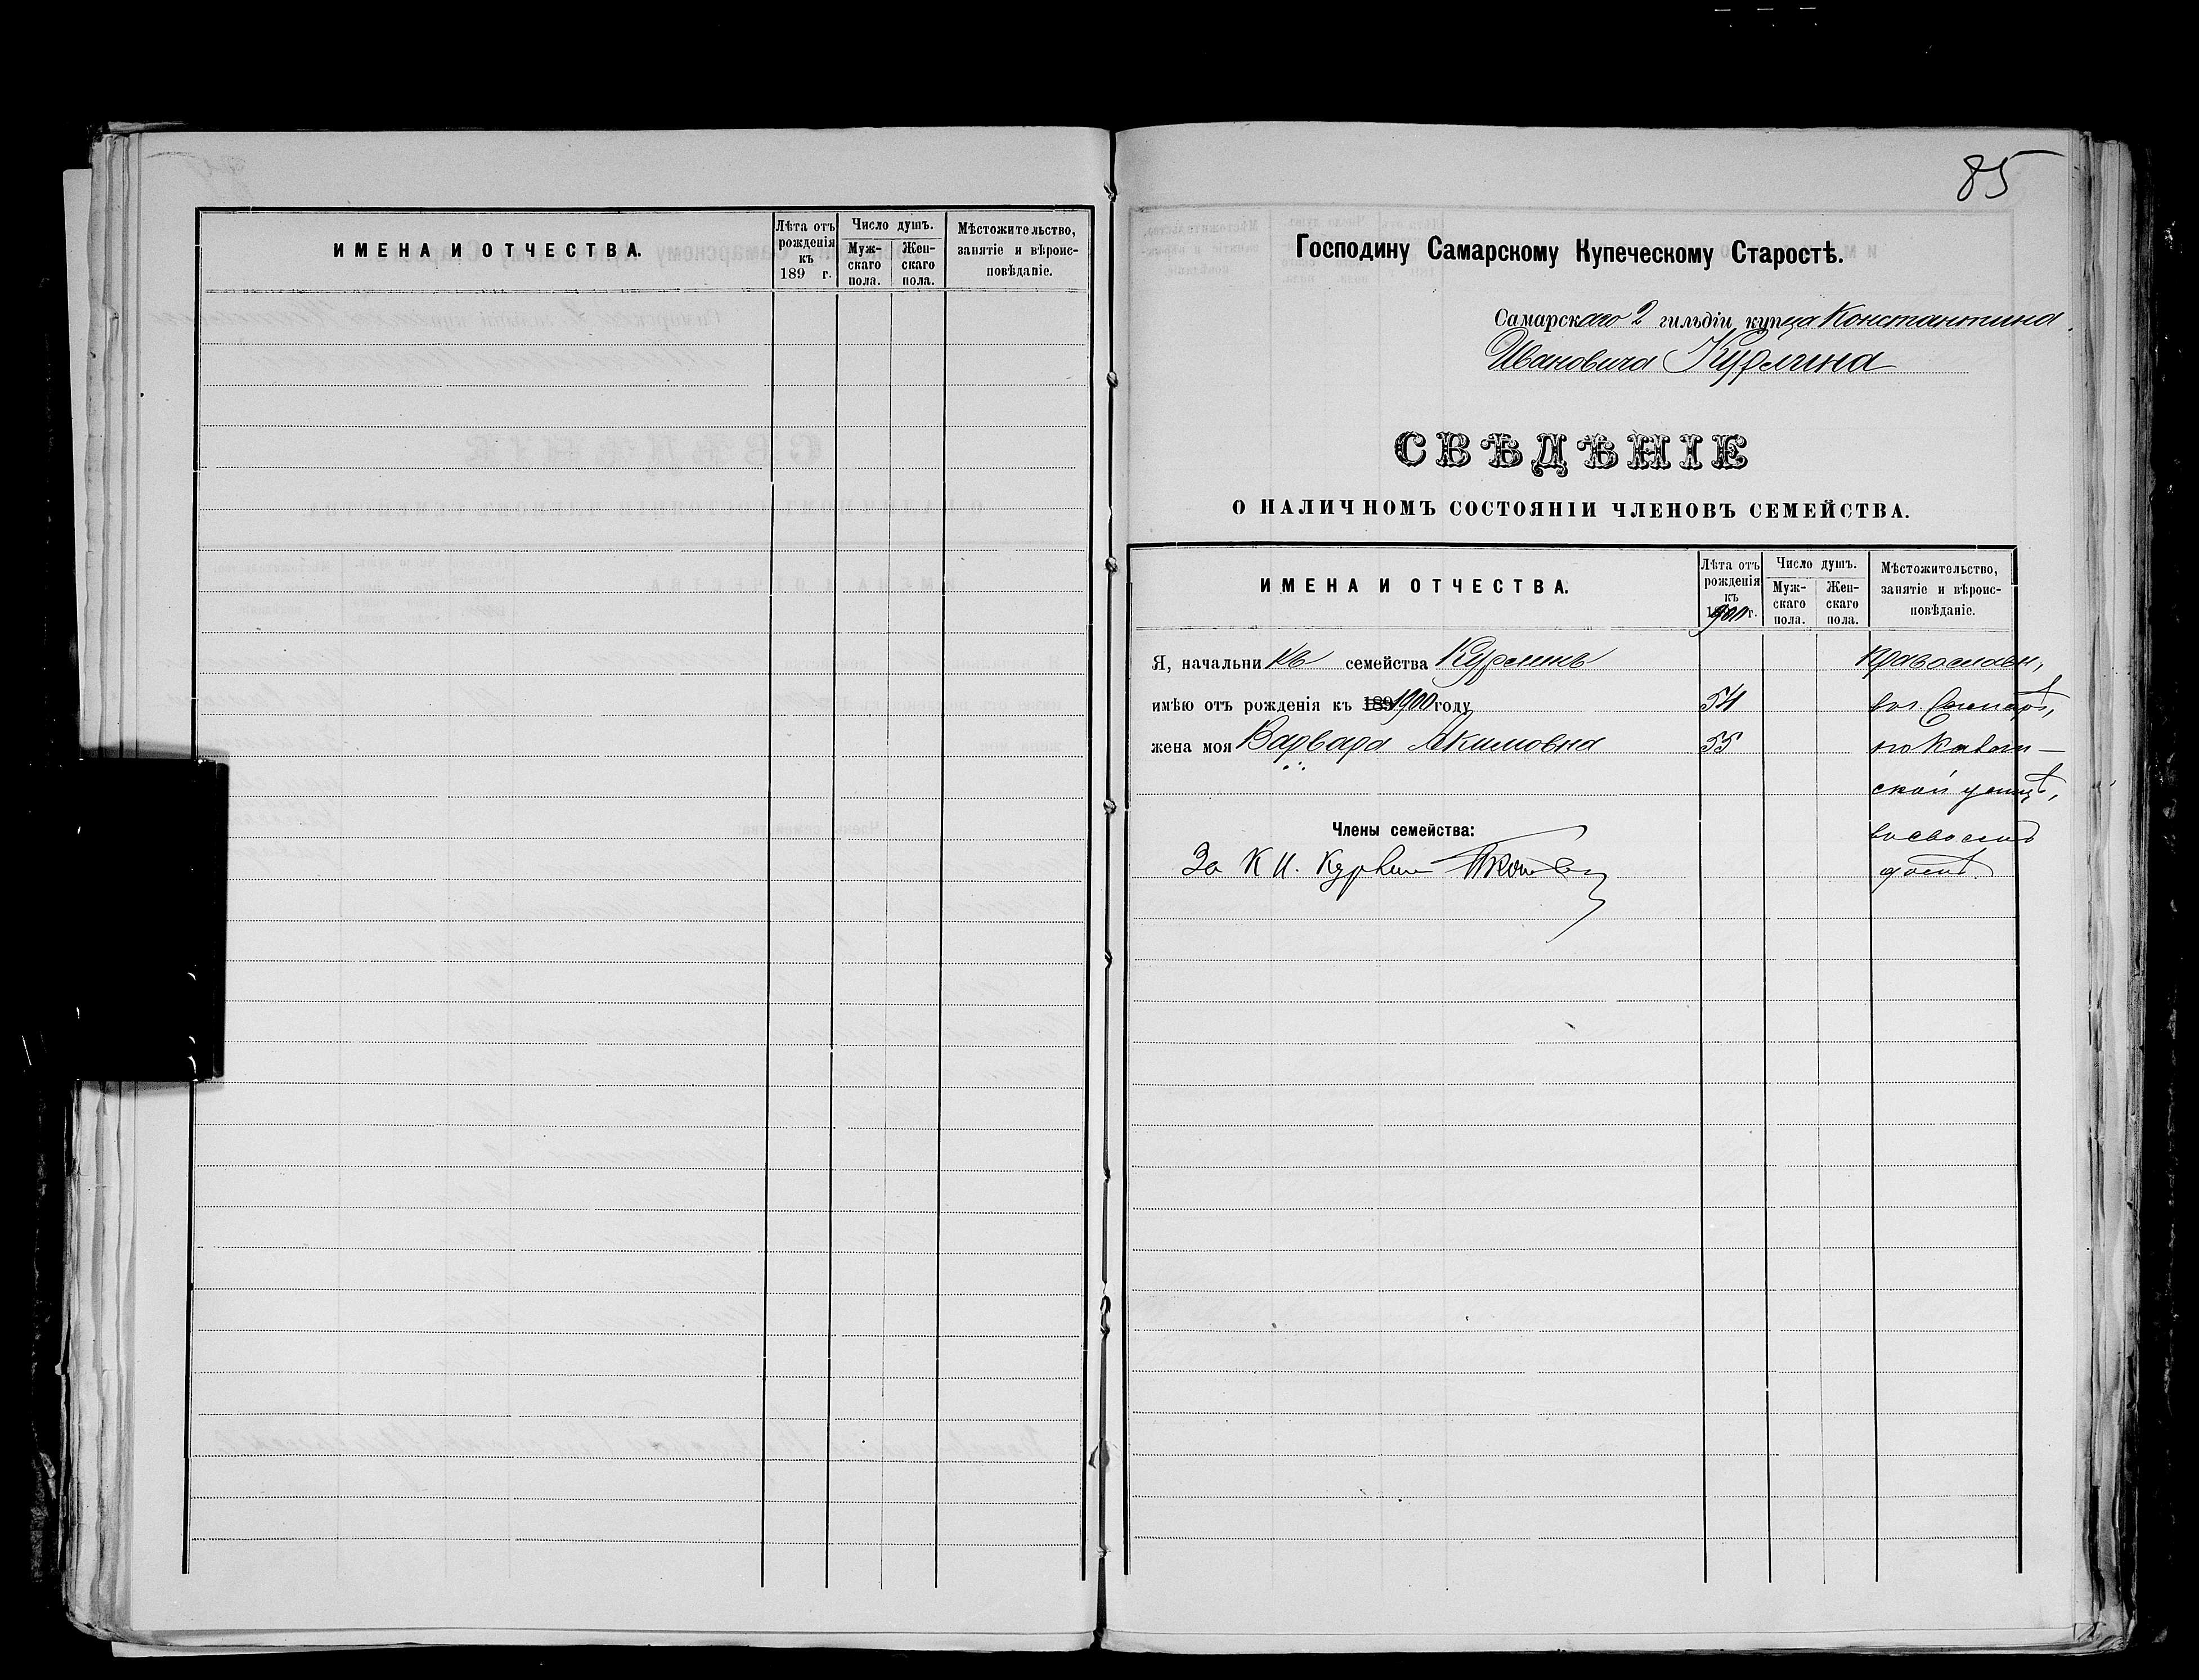 ИМЕНА И ОТЧЕСТВА.
Лѣта отъ рожденія къ 189 г.
Число душъ.
Мужскаго пола.
Женскаго пола.
Мѣстожительство, занятіе и вѣроисповѣданіе.
85
Господину Самарскому Купеческому Старостѣ.
Самарскаго 2 гильдіи купца Константина
Ивановича Курлина
СВѢДѢНІЕ
О НАЛИЧНОМЪ СОСТОЯНІИ ЧЛЕНОВЪ СЕМЕЙСТВА.
ИМЕНА И ОТЧЕСТВА.
Лѣта отъ рожденія къ 1900 г.
Число душъ.
Мужскаго пола.
Женскаго пола.
Мѣстожительство, занятіе и вѣроисповѣданіе.
Я, начальникъ семейства Курлинъ православн,
имѣю отъ рожденія къ 189 1900 году 54 въ г. Самарѣ,
жена моя Варвара Акимовна 55 по Каѳоли-
ской улицѣ,
Члены семейства: въ своемъ
За К И. Курлин домѣ.